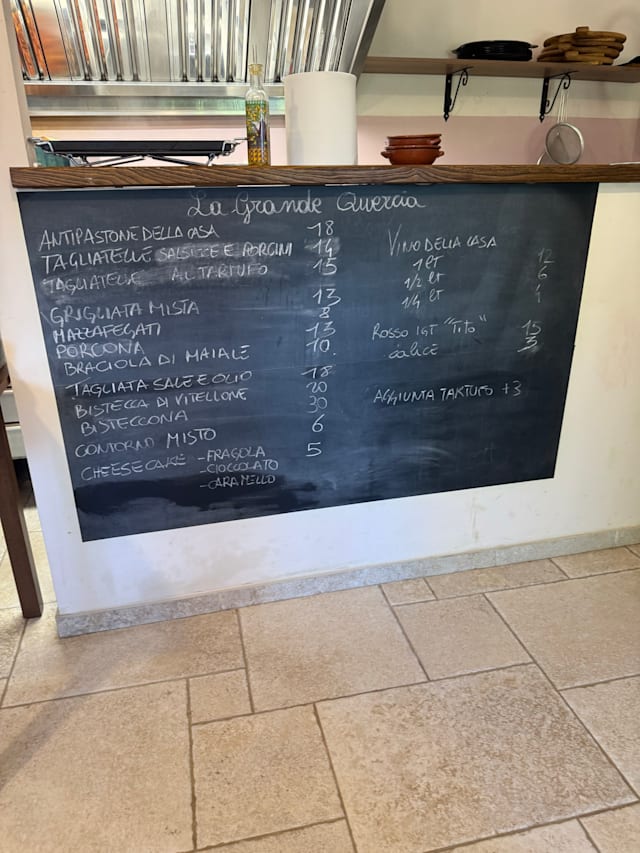 La Grande Quercia
ANTIPASTONE DELLA CASA 18
TAGLIATELLE SALSICCE E PORCINI 14
TAGLIATELLE AL TARTUFO 15
GRIGLIATA MISTA 13
MAZZAFEGATI 8
PORCONA 13
BRACIOLA DI MAIALE 10.
TAGLIATA SALE E OLIO 18
BISTECCA DI VITELLONE 20
BISTECCONA 30
CONTORNO MISTO 6
CHEESECAKE - FRAGOLA 5
- CIOCCOLATO
- CARAMELLO
VINO DELLA CASA
1 lt 12
1/2 lt 6
1/4 lt 4
ROSSO IGT "Tito" 15
calice 3
AGGIUNTA TARTUFO +3